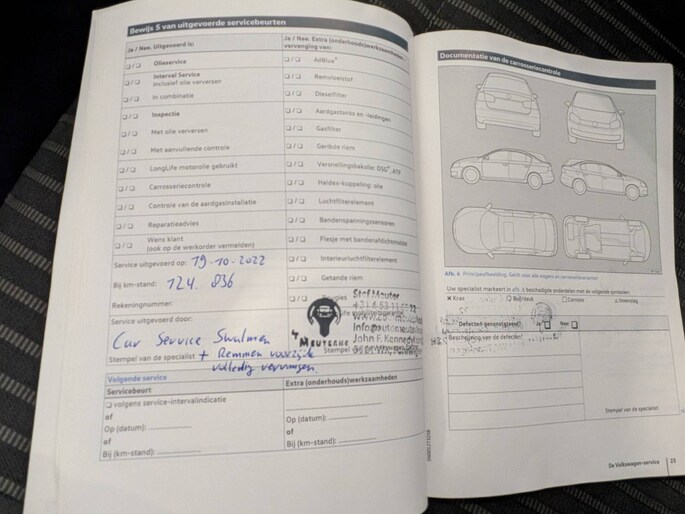 Bewijs 5 van uitgevoerde servicebeurten
Ja / Nee. Uitgevoerd is:
❑/❑ Olieservice
❑/❑ Interval Service
inclusief olie verversen
❑/❑ In combinatie
❑/❑ Inspectie
❑/❑ Met olie verversen
❑/❑ Met aanvullende controle
❑/❑ LongLife motorolie gebruikt
❑/❑ Carrosseriecontrole
❑/❑ Controle van de aardgasinstallatie
❑/❑ Reparatieadvies
❑/❑ Wens klant
(ook op de werkorder vermelden)
Service uitgevoerd op: 19-10-2022
Bij km-stand: 124.036
Rekeningnummer:
Service uitgevoerd door:
Car Service
Stempel van de specialist + Remmen voorzijde
volledig vervangen
Ja / Nee. Extra (onderhouds)werkzaamheden
vervanging van:
❑/❑ AdBlue®
❑/❑ Remvloeistof
❑/❑ Dieselfilter
❑/❑ Aardgastanks en -leidingen
❑/❑ Gasfilter
❑/❑ Geribde riem
❑/❑ Versnellingsbakolie: DSG®, ATF
❑/❑ Haldex-koppeling: olie
❑/❑ Luchtfilterelement
❑/❑ Bandenspanningssensoren
❑/❑ Flesje met bandenafdichtmiddel
❑/❑ Interieurluchtfilterelement
❑/❑ Getande riem
Stef Meuter
John F. Kennedy
Volgende service
Servicebeurt
❑ volgens service-intervalindicatie
of
Op (datum):
of
Bij (km-stand):
Extra (onderhouds)werkzaamheden
Op (datum):
of
Bij (km-stand):
Documentatie van de carrosseriecontrole
Afb. 6 Principeafbeelding. Geldt voor alle wagens en carrosserievarianten
Uw specialist markeert in afb. 6 beschadigde onderdelen met de volgende symbolen:
× Kras
Corrosie
Steenslag
Defecten geconstateerd? Ja ❑ Nee ❑
Beschrijving van de defecten:
Stempel van de specialist
De Volkswagen-service
23